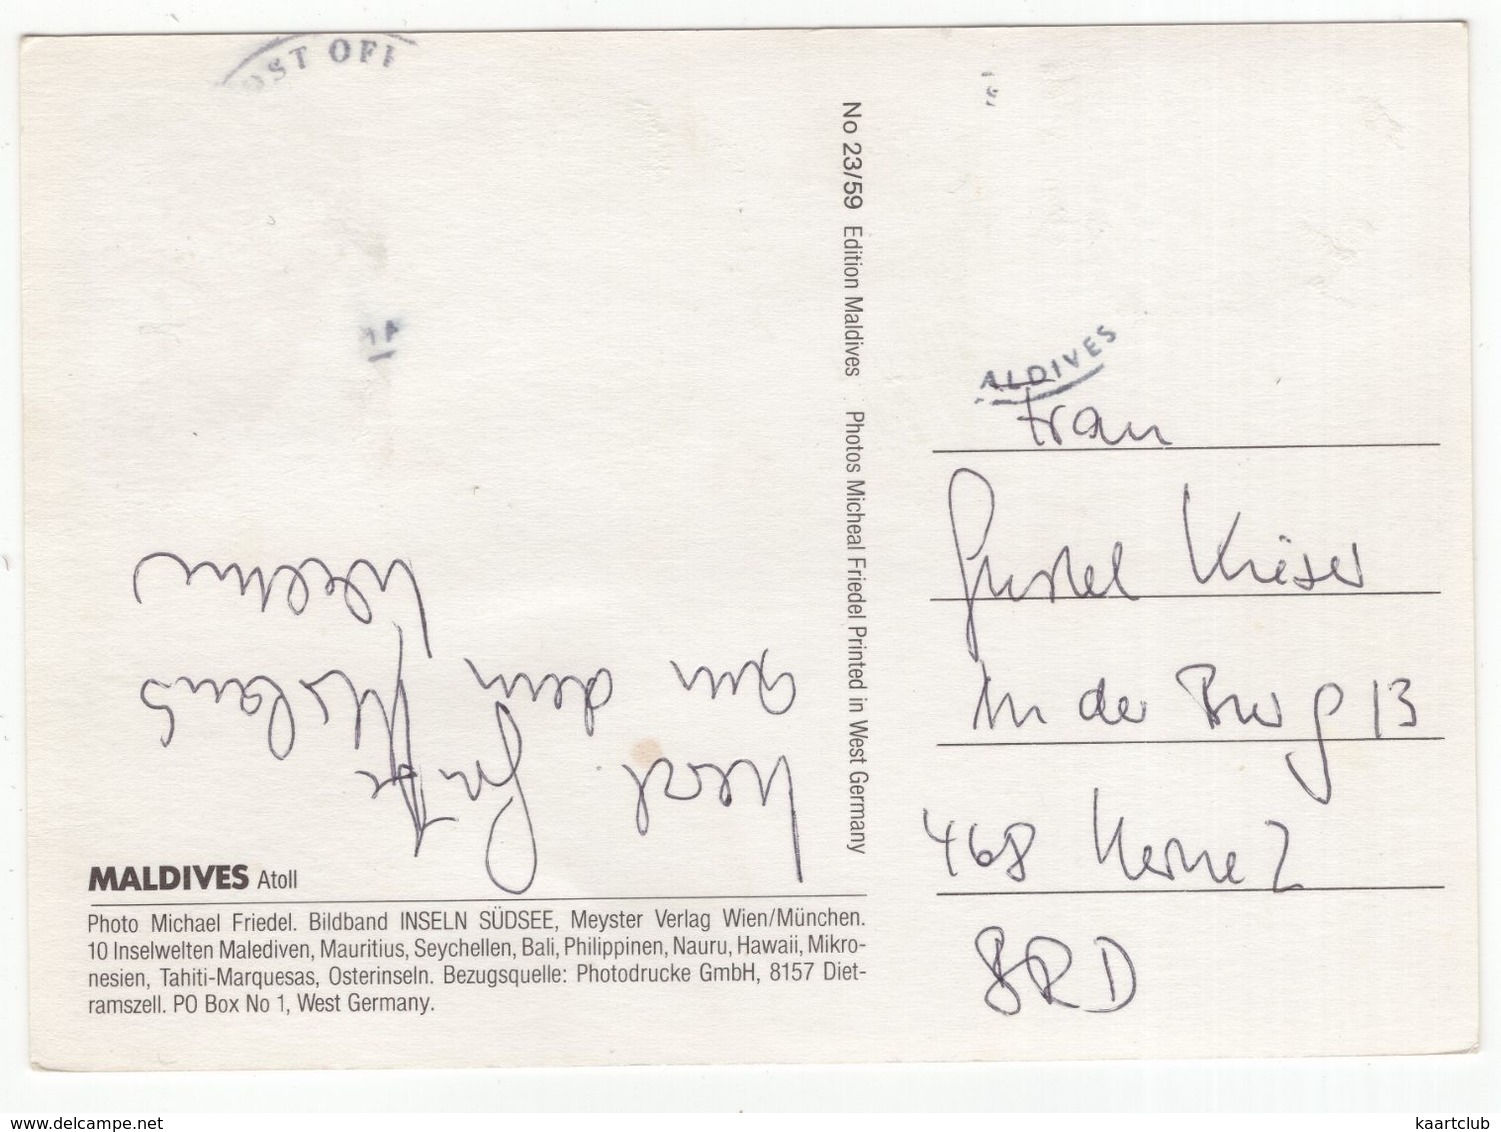 OST OFF
ALDIVES
No 23/59 Edition Maldives Photos Micheal Friedel Printed in West Germany
Herzl. Grüße
aus dem Urlaub
Frau
Gustel Kieser
In der Burg 13
468 Herne 2
BRD
MALDIVES Atoll
Photo Michael Friedel. Bildband INSELN SÜDSEE, Meyster Verlag Wien/München.
10 Inselwelten Malediven, Mauritius, Seychellen, Bali, Philippinen, Nauru, Hawaii, Mikro-
nesien, Tahiti-Marquesas, Osterinseln. Bezugsquelle: Photodrucke GmbH, 8157 Diet-
ramszell. PO Box No 1, West Germany.
kaartclub